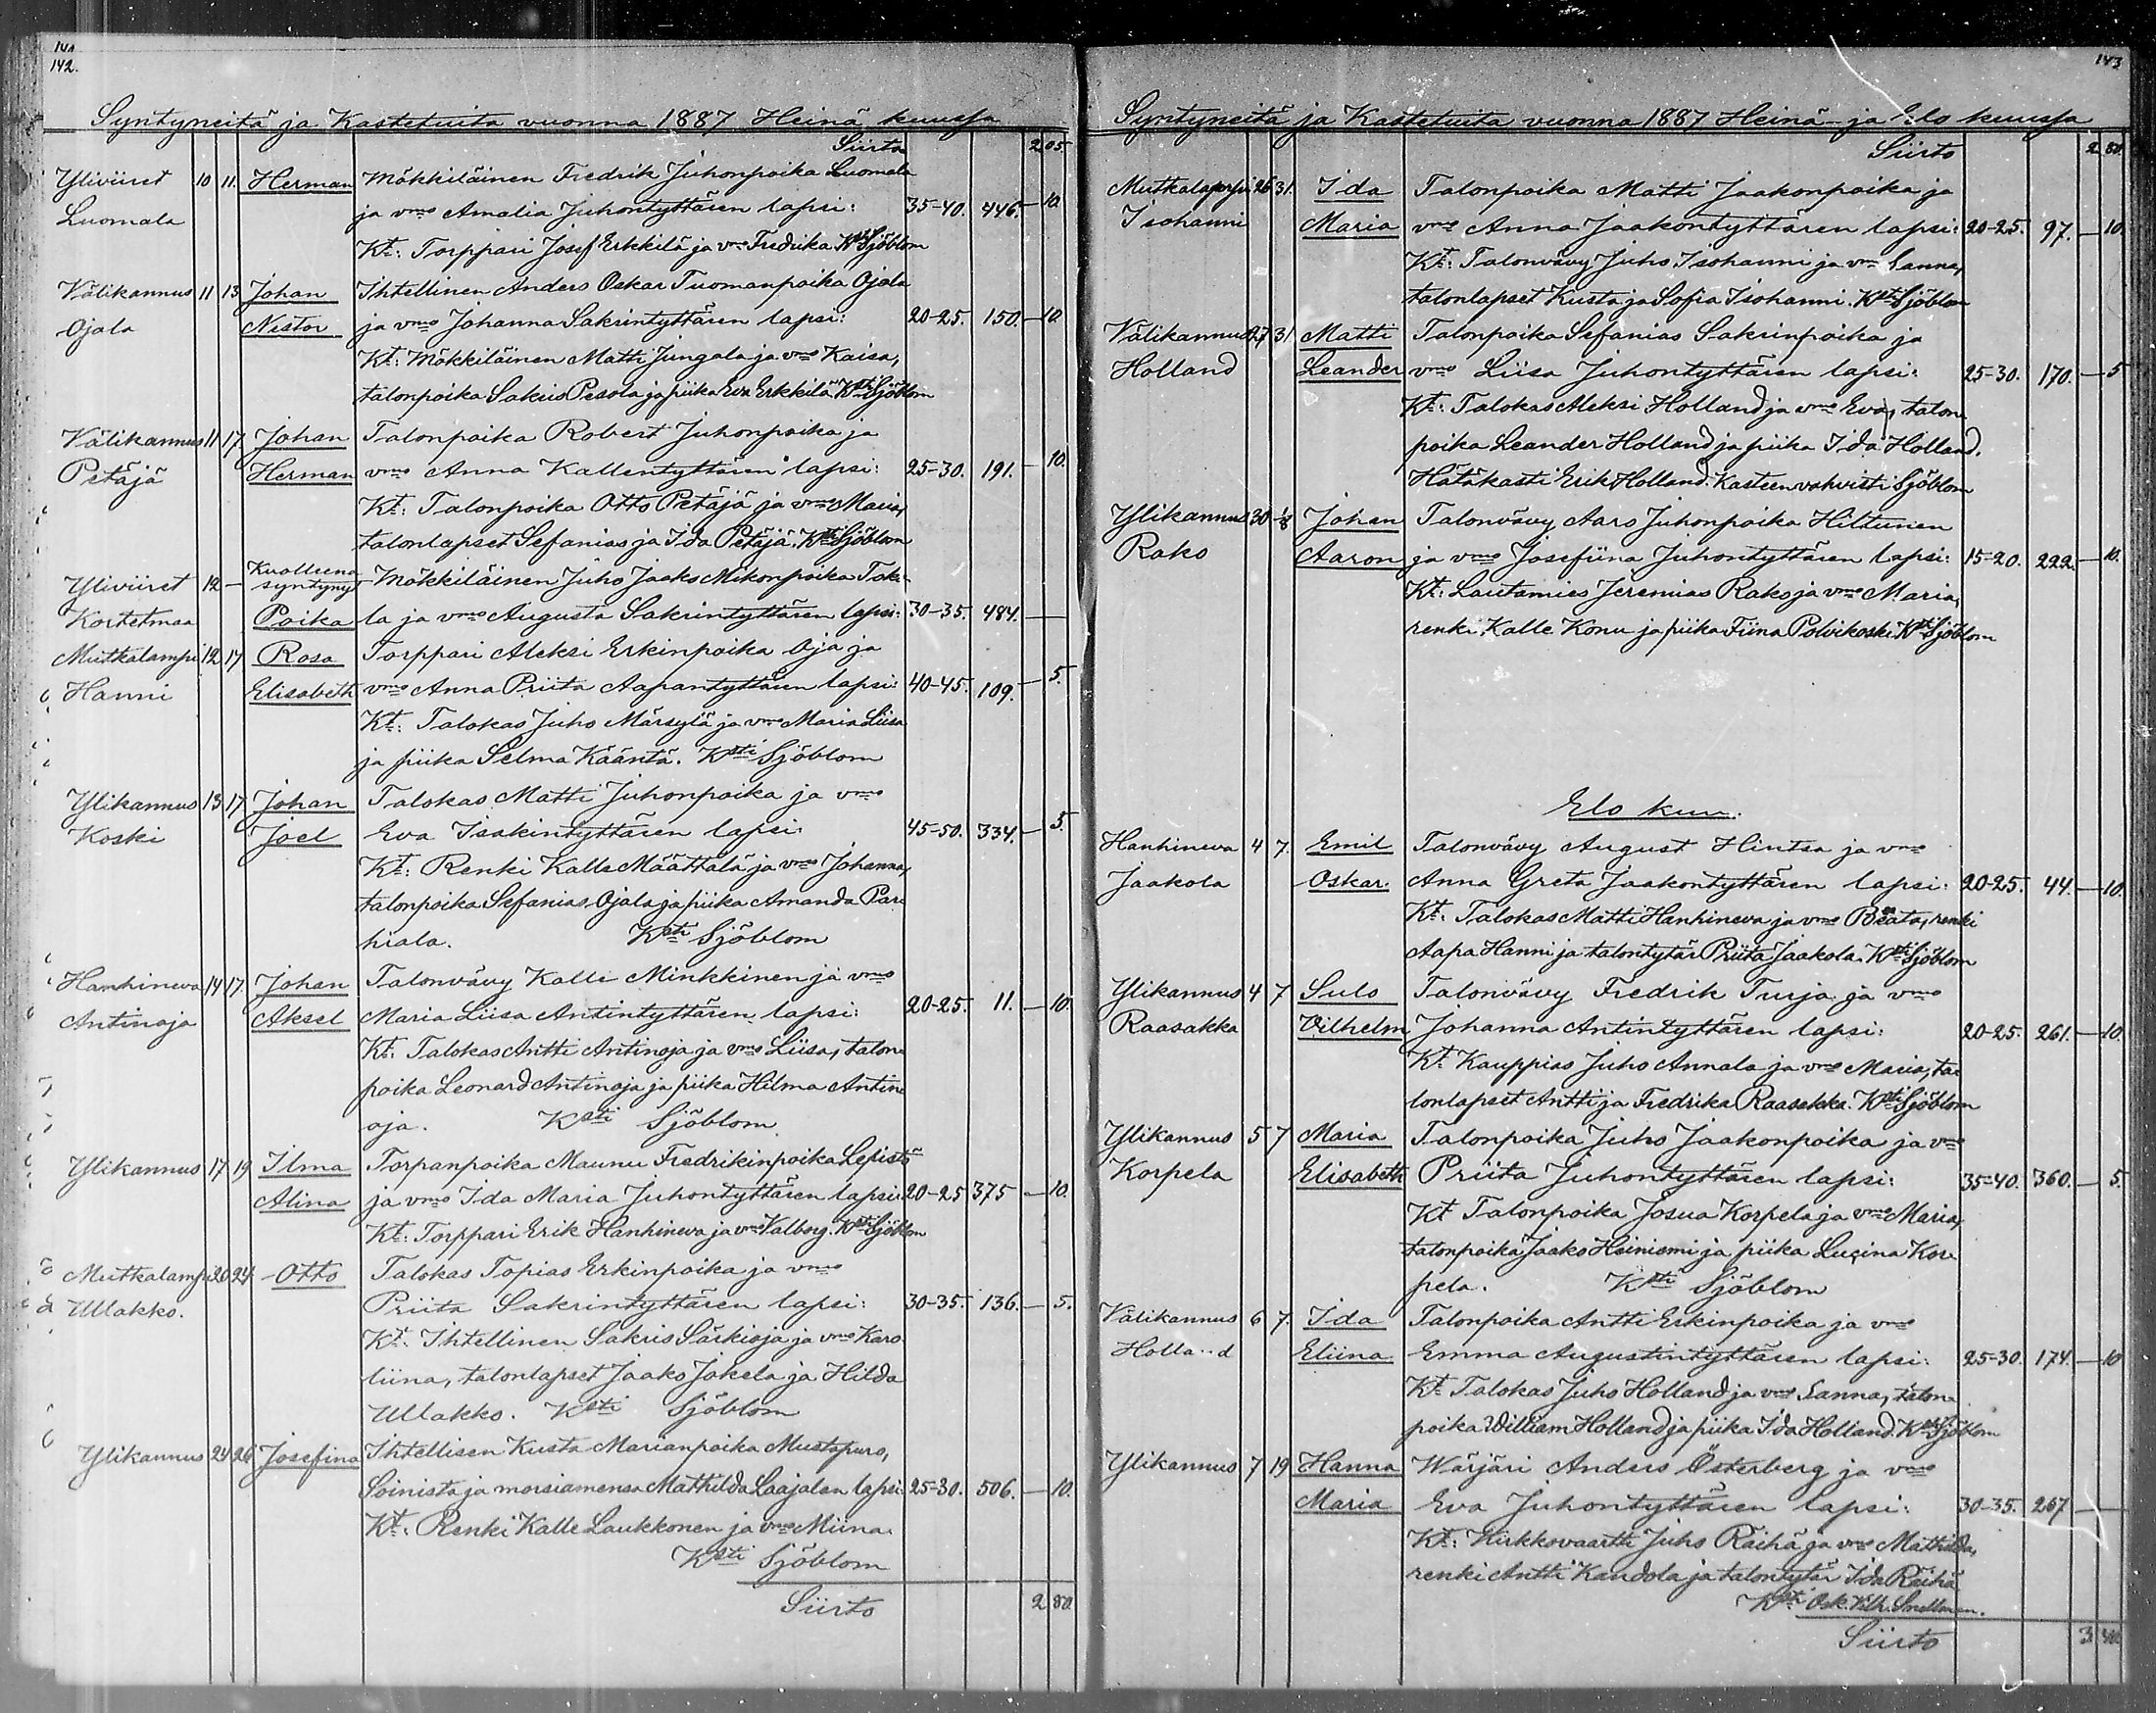 142.
Syntyneitä ja Kastetuita vuonna 1887 Heinä kuussa
Siirto 2 05
Yliviiret 10 11. Herman Mökkiläinen Fredrik Juhonpoika Luomala
Luomala ja vmo Amalia Juhontyttären lapsi: 35-40. 446. — 10.
Kt: Torppari Josef Erkkilä ja vmo Fredrika Ksti Sjöblom
Välikannus 11 13 Johan Ihtellinen Anders Oskar Tuomanpoika Ojala
Ojala Nestor ja vmo Johanna Sakrintyttären lapsi: 20-25. 150. — 10.
Kt: Mökkiläinen Matti Jungala ja vmo Kaisa,
talonpoika Sakris Pesola ja piika Eva Erkkilä Ksti Sjöblom
Välikannus 11 17 Johan Talonpoika Robert Juhonpoika ja
Petäjä Herman vmo Anna Kallentyttären lapsi: 25-30. 191. — 10.
Kt: Talonpoika Otto Petäjä ja vmo Maria,
talonlapset Sefanias ja Ida Petäjä. Ksti Sjöblom
Yliviiret 12 — Kuolleena syntynyt Mökkiläinen Juho Jaako Mikonpoika Toko-
Kortetmaa Poika la ja vmo Augusta Sakrintyttären lapsi: 30-35. 484. —
Mutkalampi 12 17 Rosa Torppari Aleksi Erkinpoika Oja ja
Hanni Elisabeth vmo Anna Priita Aapantyttären lapsi: 40-45. 109. — 5.
Kt: Talokas Juho Märsylä ja vmo Maria Liisa
ja piika Selma Kääntä. Ksti Sjöblom
Ylikannus 13 17 Johan Talokas Matti Juhonpoika ja vmo
Koski Joel Eva Isakintyttären lapsi: 45-50. 334. — 5.
Kt: Renki Kalle Määttälä ja vmo Johanna,
talonpoika Sefanias Ojala ja piika Amanda Par-
hiala. Ksti Sjöblom
Hanhineva 14 17. Johan Talonvävy Kalle Minkkinen ja vmo
Antinoja Aksel Maria Liisa Antintyttären lapsi: 20-25. 11. — 10.
Kt: Talokas Antti Antinoja ja vmo Liisa, talon-
poika Leonard Antinoja ja piika Hilma Antin-
oja. Ksti Sjöblom
Ylikannus 17 19 Ilma Torpanpoika Maunu Fredrikinpoika Lepistö
Alina ja vmo Ida Maria Juhontyttären lapsi: 20-25 375 — 10.
Kt: Torppari Erik Hanhineva ja vmo Valborg. Ksti Sjöblom
Mutkalampi 20 24 Otto Talokas Topias Erkinpoika ja vmo
Ullakko. Priita Sakrintyttären lapsi: 30-35. 136. — 5.
Kt: Ihtellinen Sakris Särkioja ja vmo Karo-
liina, talonlapset Jaako Jokela ja Hilda
Ullakko. Ksti Sjöblom
Ylikannus 24 26 Josefina Ihtellisen Kusta Marianpoika Mustapuro,
Soinista ja morsiamensa Mathilda Laajalan lapsi: 25-30. 506. — 10.
Kt: Renki Kalle Laukkonen ja vmo Miina.
Ksti Sjöblom
Siirto 2 80.
143
Syntyneitä ja Kastetuita vuonna 1887 Heinä- ja Elo kuussa
Siirto 2 80.
Mutkalampi 26 31. Ida Talonpoika Matti Jaakonpoika ja
Isohanni Maria vmo Anna Jaakontyttären lapsi: 20-25. 97. — 10.
Kt: Talonvävy Juho Isohanni ja vmo Sanna,
talonlapset Kusta ja Sofia Isohanni. Ksti Sjöblom
Välikannus 27 31 Matti Talonpoika Sefanias Sakrinpoika ja
Holland Leander vmo Liisa Juhontyttären lapsi: 25-30. 170. — 5
Kt: Talokas Aleksi Holland ja vmo Eva, talon-
poika Leander Holland ja piika Ida Holland.
Hätäkasti Erik Holland. Kasteen vahvisti Sjöblom
Ylikannus 30 1/8 Johan Talonvävy Aaro Juhonpoika Hiltunen
Rako Aaron ja vmo Josefiina Juhontyttären lapsi: 15-20. 222. — 10.
Kt: Lautamies Jeremias Rako ja vmo Maria,
renki Kalle Konu ja piika Fiina Polvikoski Ksti Sjöblom
Elo kuu.
Hanhineva 4 7. Emil Talonvävy August Hintsa ja vmo
Jaakola Oskar. Anna Greta Jaakontyttären lapsi: 20-25. 44. — 10.
Kt: Talokas Matti Hanhineva ja vmo Beata, renki
Aapa Hanni ja talontytär Priita Jaakola. Ksti Sjöblom
Ylikannus 4 7 Sulo Talonvävy Fredrik Turja ja vmo
Raasakka Vilhelm Johanna Antintyttären lapsi: 20-25. 261. — 10.
Kt Kauppias Juho Annala ja vmo Maria, ta-
lonlapset Antti ja Fredrika Raasakka. Ksti Sjöblom
Ylikannus 5 7 Maria Talonpoika Juho Jaakonpoika ja vmo
Korpela Elisabeth Priita Juhontyttären lapsi: 35-40. 360. — 5.
Kt Talonpoika Josua Korpela ja vmo Maria,
talonpoika Jaako Heiniemi ja piika Lusina Kor-
pela. Ksti Sjöblom
Välikannus 6 7. Ida Talonpoika Antti Erkinpoika ja vmo
Holla..d Eliina Emma Augustintyttären lapsi: 25-30. 174. — 10
Kt Talokas Juho Holland ja vmo Sanna, talon-
poika William Holland ja piika Ida Holland. Ksti Sjöblom
Ylikannus 7 19 Hanna Wärjäri Anders Österberg ja vmo
Maria Eva Juhontyttären lapsi: 30-35. 267 —
Kt: Kirkkovaartti Juho Räihä ja vmo Mathilda,
renki Antti Kandola ja talontytär Ida Räihä
Ksti Osk. Vilh. Snellman.
Siirto 3